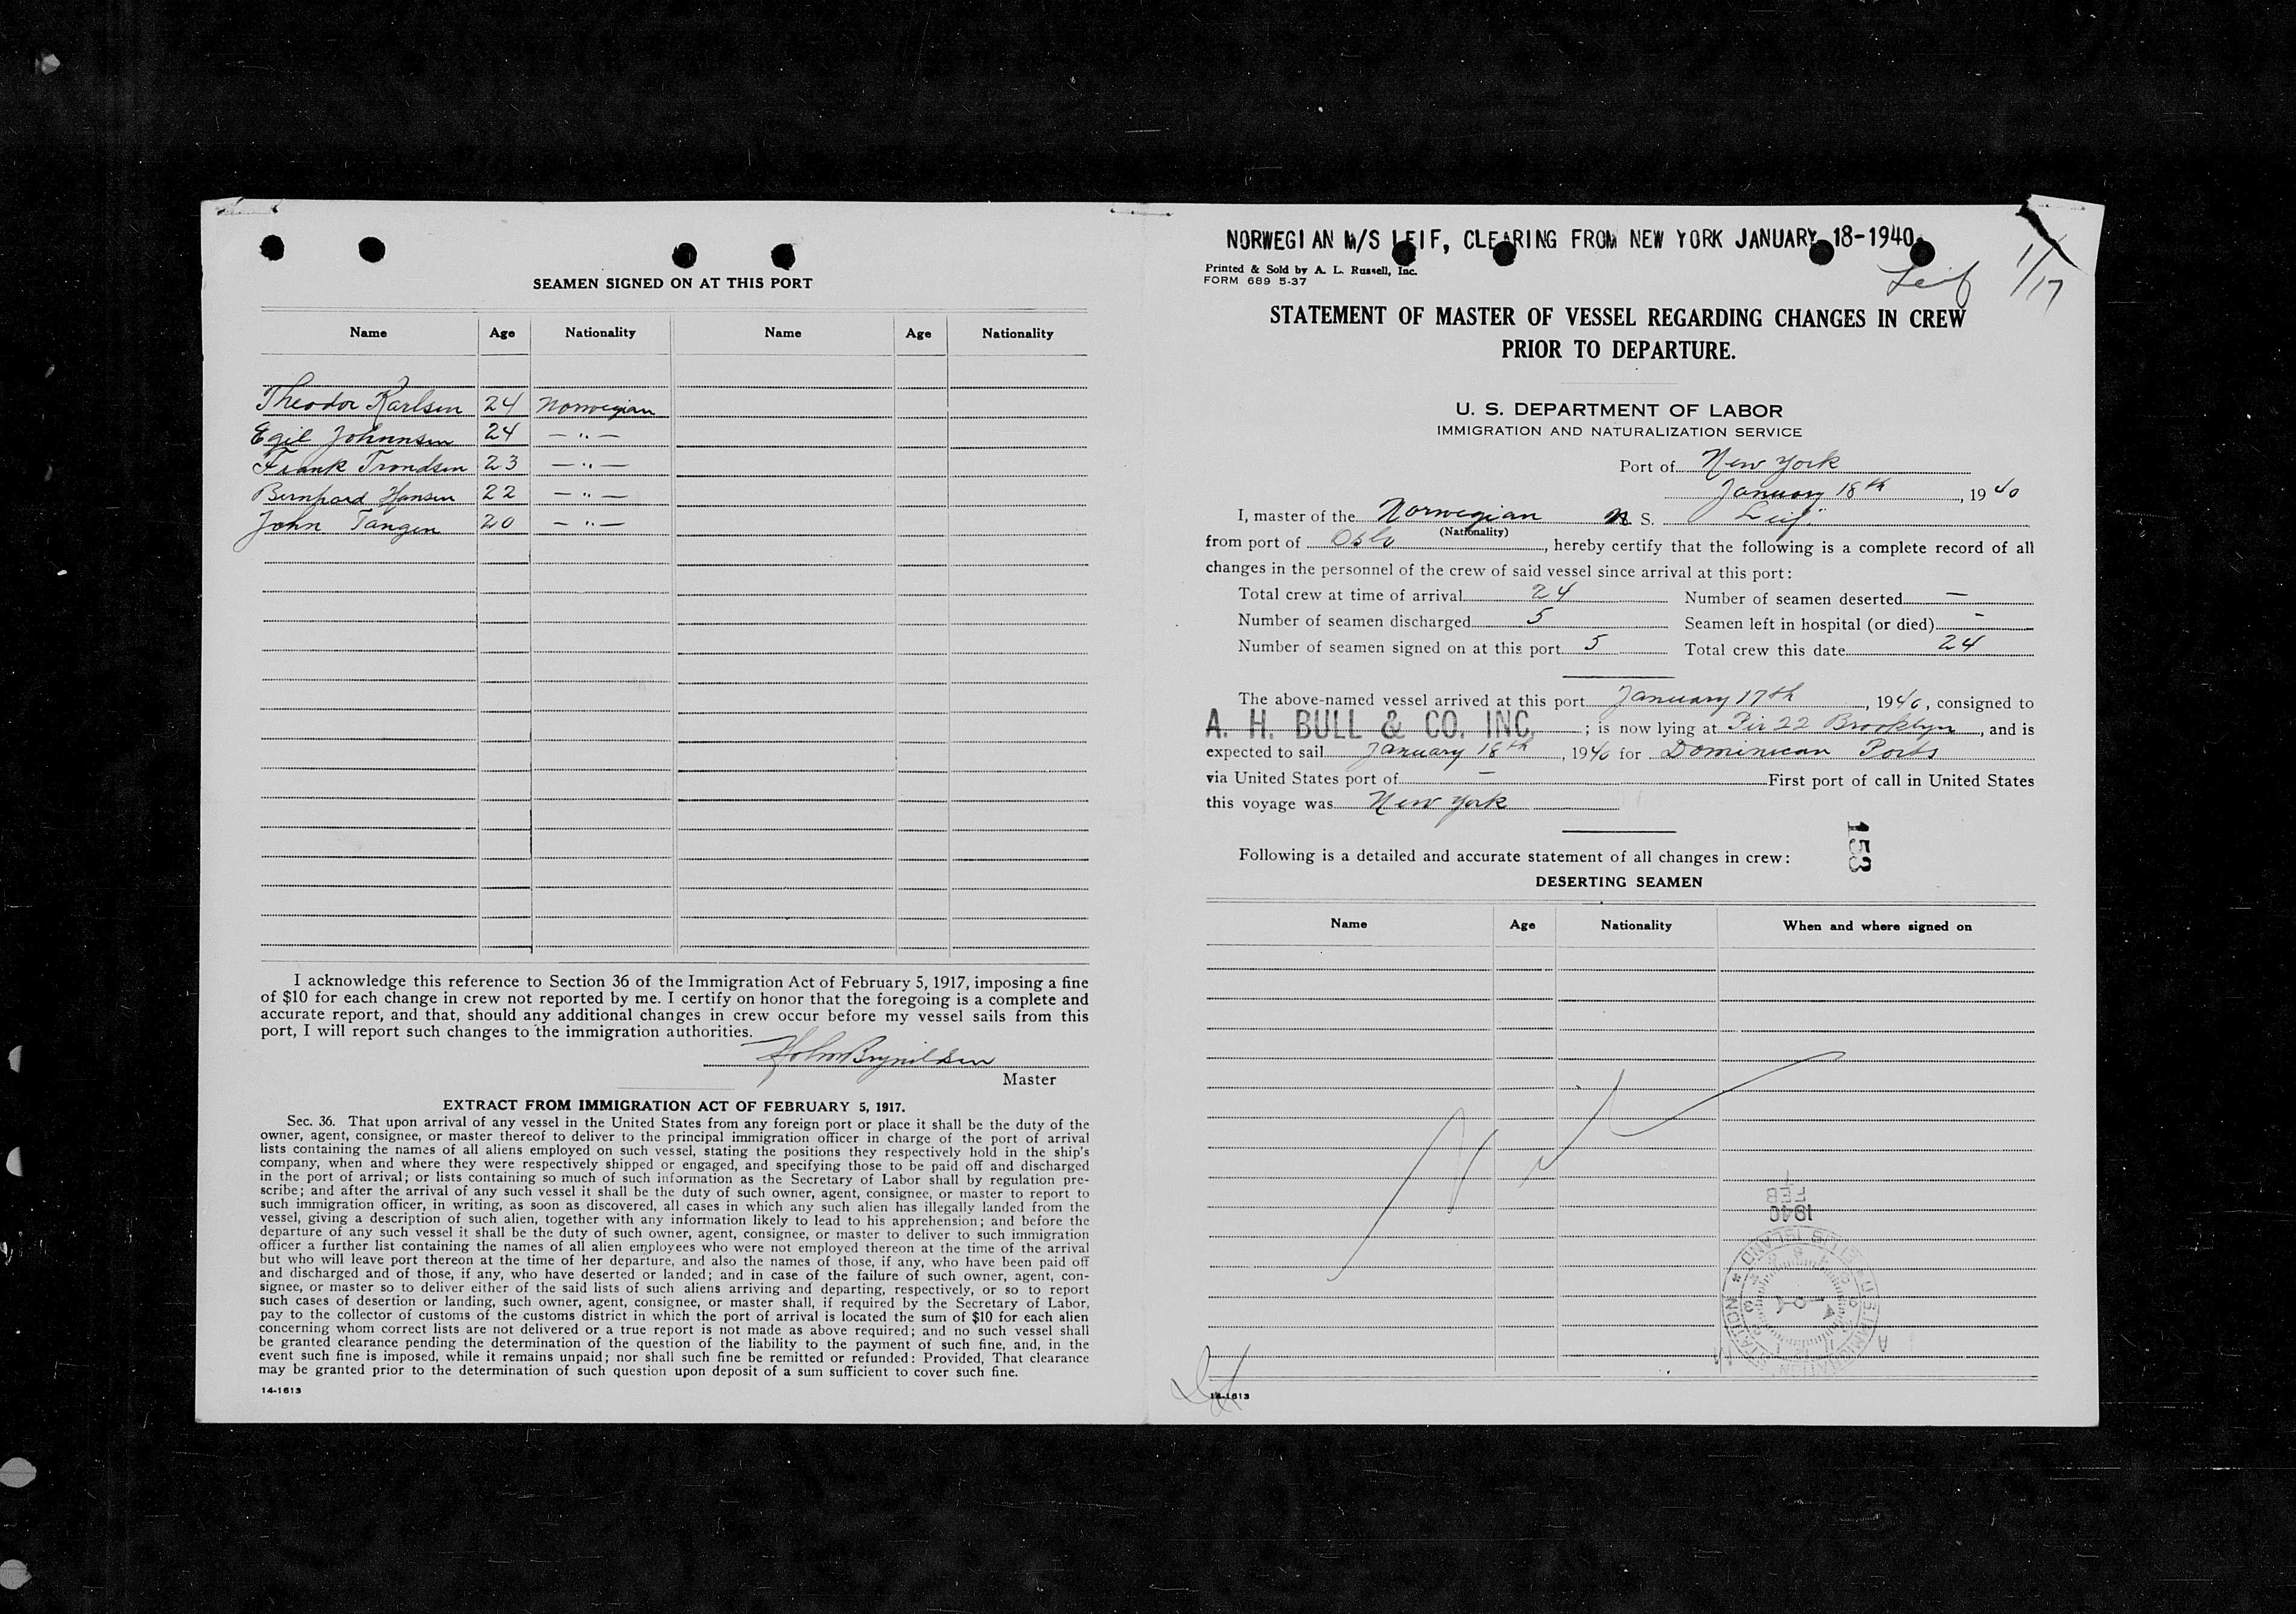 SEAMEN SIGNED ON AT THIS PORT
Name Age Nationality Name Age Nationality
Theodor Karlsen 24 Norwegian
Egil Johnnsen 24 — " —
Frank Trondsen 23 — " —
Bernhard Hansen 22 — " —
John Tangen 20 — " —
I acknowledge this reference to Section 36 of the Immigration Act of February 5, 1917, imposing a fine
of $10 for each change in crew not reported by me. I certify on honor that the foregoing is a complete and
accurate report, and that, should any additional changes in crew occur before my vessel sails from this
port, I will report such changes to the immigration authorities.
Master
EXTRACT FROM IMMIGRATION ACT OF FEBRUARY 5, 1917.
Sec. 36. That upon arrival of any vessel in the United States from any foreign port or place it shall be the duty of the
owner, agent, consignee, or master thereof to deliver to the principal immigration officer in charge of the port of arrival
lists containing the names of all aliens employed on such vessel, stating the positions they respectively hold in the ship's
company, when and where they were respectively shipped or engaged, and specifying those to be paid off and discharged
in the port of arrival; or lists containing so much of such information as the Secretary of Labor shall by regulation pre-
scribe; and after the arrival of any such vessel it shall be the duty of such owner, agent, consignee, or master to report to
such immigration officer, in writing, as soon as discovered, all cases in which any such alien has illegally landed from the
vessel, giving a description of such alien, together with any information likely to lead to his apprehension; and before the
departure of any such vessel it shall be the duty of such owner, agent, consignee, or master to deliver to such immigration
officer a further list containing the names of all alien employees who were not employed thereon at the time of the arrival
but who will leave port thereon at the time of her departure, and also the names of those, if any, who have been paid off
and discharged and of those, if any, who have deserted or landed; and in case of the failure of such owner, agent, con-
signee, or master so to deliver either of the said lists of such aliens arriving and departing, respectively, or so to report
such cases of desertion or landing, such owner, agent, consignee, or master shall, if required by the Secretary of Labor,
pay to the collector of customs of the customs district in which the port of arrival is located the sum of $10 for each alien
concerning whom correct lists are not delivered or a true report is not made as above required; and no such vessel shall
be granted clearance pending the determination of the question of the liability to the payment of such fine, and, in the
event such fine is imposed, while it remains unpaid; nor shall such fine be remitted or refunded: Provided, That clearance
may be granted prior to the determination of such question upon deposit of a sum sufficient to cover such fine.
14-1613
NORWEGIAN M/S LEIF, CLEARING FROM NEW YORK JANUARY 18-1940.
Leif 1/17
Printed & Sold by A. L. Russell, Inc.
FORM 689 5-37
STATEMENT OF MASTER OF VESSEL REGARDING CHANGES IN CREW
PRIOR TO DEPARTURE.
U. S. DEPARTMENT OF LABOR
IMMIGRATION AND NATURALIZATION SERVICE
Port of New York
January 18th, 1940
I, master of the Norwegian M. S. "Leif"
(Nationality)
from port of Oslo, hereby certify that the following is a complete record of all
changes in the personnel of the crew of said vessel since arrival at this port:
Total crew at time of arrival 24 Number of seamen deserted —
Number of seamen discharged 5 Seamen left in hospital (or died) -
Number of seamen signed on at this port 5 Total crew this date 24
The above-named vessel arrived at this port January 17th, 1940, consigned to
A. H. BULL & CO. INC. ; is now lying at Pir 22 Brooklyn, and is
expected to sail January 18th, 1940 for Dominican Ports
via United States port of — First port of call in United States
this voyage was New York
153
Following is a detailed and accurate statement of all changes in crew:
DESERTING SEAMEN
Name Age Nationality When and where signed on
FEB
1940
U.S. IMMIGRATION STATION * ELLIS ISLAND *
14-1613